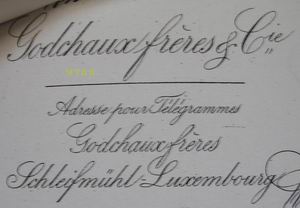 Godchaux frères & Cie
Adresse pour Télégrammes
Godchaux frères
Schleifmühl-Luxembourg